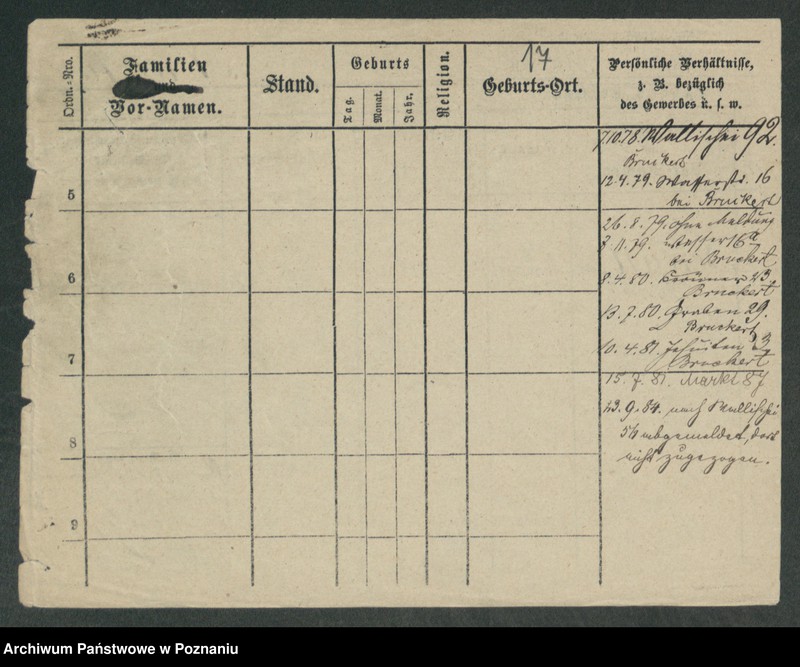 17
Ordn.-Nro.
Familien
und
Vor-Namen.
Stand.
Geburts
Tag.
Monat.
Jahr.
Religion.
Geburts-Ort.
Persönliche Verhältnisse,
z. B. bezüglich
des Gewerbes u. s. w.
7.10.78. Wallischei 92.
Bruckert
12.4.79. Wasserstr. 16
bei Bruckert
5
26.8.79. ohne Meldung
8.11.79. Wasserst
bei Bruckert
6
8.4.80. 23.
Bruckert
13.7.80. Graben 29.
Bruckert
10.4.81. Jesuiten
Bruckert
7
15.7.81. Markt 87
23.9.84. nach Wallischei
abgemeldet, dort
nicht zugezogen.
8
9
Archiwum Państwowe w Poznaniu